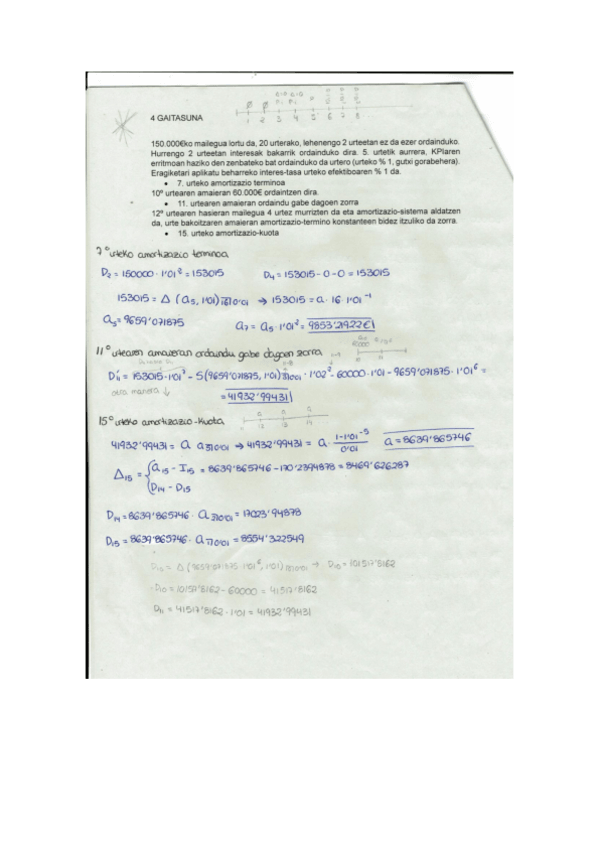 4 GAITASUNA
1 2 3 4 5 6 7 8
150.000€ko mailegua lortu da, 20 urterako, lehenengo 2 urteetan ez da ezer ordainduko.
Hurrengo 2 urteetan interesak bakarrik ordainduko dira. 5. urtetik aurrera, KPIaren
erritmoan haziko den zenbateko bat ordainduko da urtero (urteko % 1, gutxi gorabehera).
Eragiketari aplikatu beharreko interes-tasa urteko efektiboaren % 1 da.
• 7. urteko amortizazio terminoa
10º urtearen amaieran 60.000€ ordaintzen dira.
• 11. urtearen amaieran ordaindu gabe dagoen zorra
12º urtearen hasieran mailegua 4 urtez murrizten da eta amortizazio-sistema aldatzen
da, urte bakoitzaren amaieran amortizazio-termino konstanteen bidez itzuliko da zorra.
• 15. urteko amortizazio-kuota
7º urteko amortizazio terminoa
D₂ = 150000 · 1'01² = 153015 D₄ = 153015 - 0 - 0 = 153015
153015 = A (a₅, 1'01)16|0'01 → 153015 = a · 16 · 1'01⁻¹
a₅ = 9659'071875 a₇ = a₅ · 1'01² = 9853'2192€
11º urtearen amaieran ordaindu gabe dagoen zorra
D₁₁ = 153015 · 1'01⁷ - S(9659'071875, 1'01)7|0'01 · 1'02² - 60000 · 1'01 - 9659'071875 · 1'01⁶ =
otra manera ↓ = 41932'99431
15º urteko amortizazio-kuota
41932'99431 = a a5|0'01 → 41932'99431 = a · 1-1'01⁻⁵ / 0'01 a = 8639'865746
Δ₁₅ = { a₁₅ - I₁₅ = 8639'865746 - 170'2394878 = 8469'626287
D₁₄ - D₁₅
D₁₄ = 8639'865746 · a2|0'01 = 17023'94878
D₁₅ = 8639'865746 · a1|0'01 = 8554'322549
D₁₀ = A (9659'071875 · 1'01⁶, 1'01)10|0'01 → D₁₀ = 101517'8162
D₁₀ = 101517'8162 - 60000 = 41517'8162
D₁₁ = 41517'8162 · 1'01 = 41932'99431